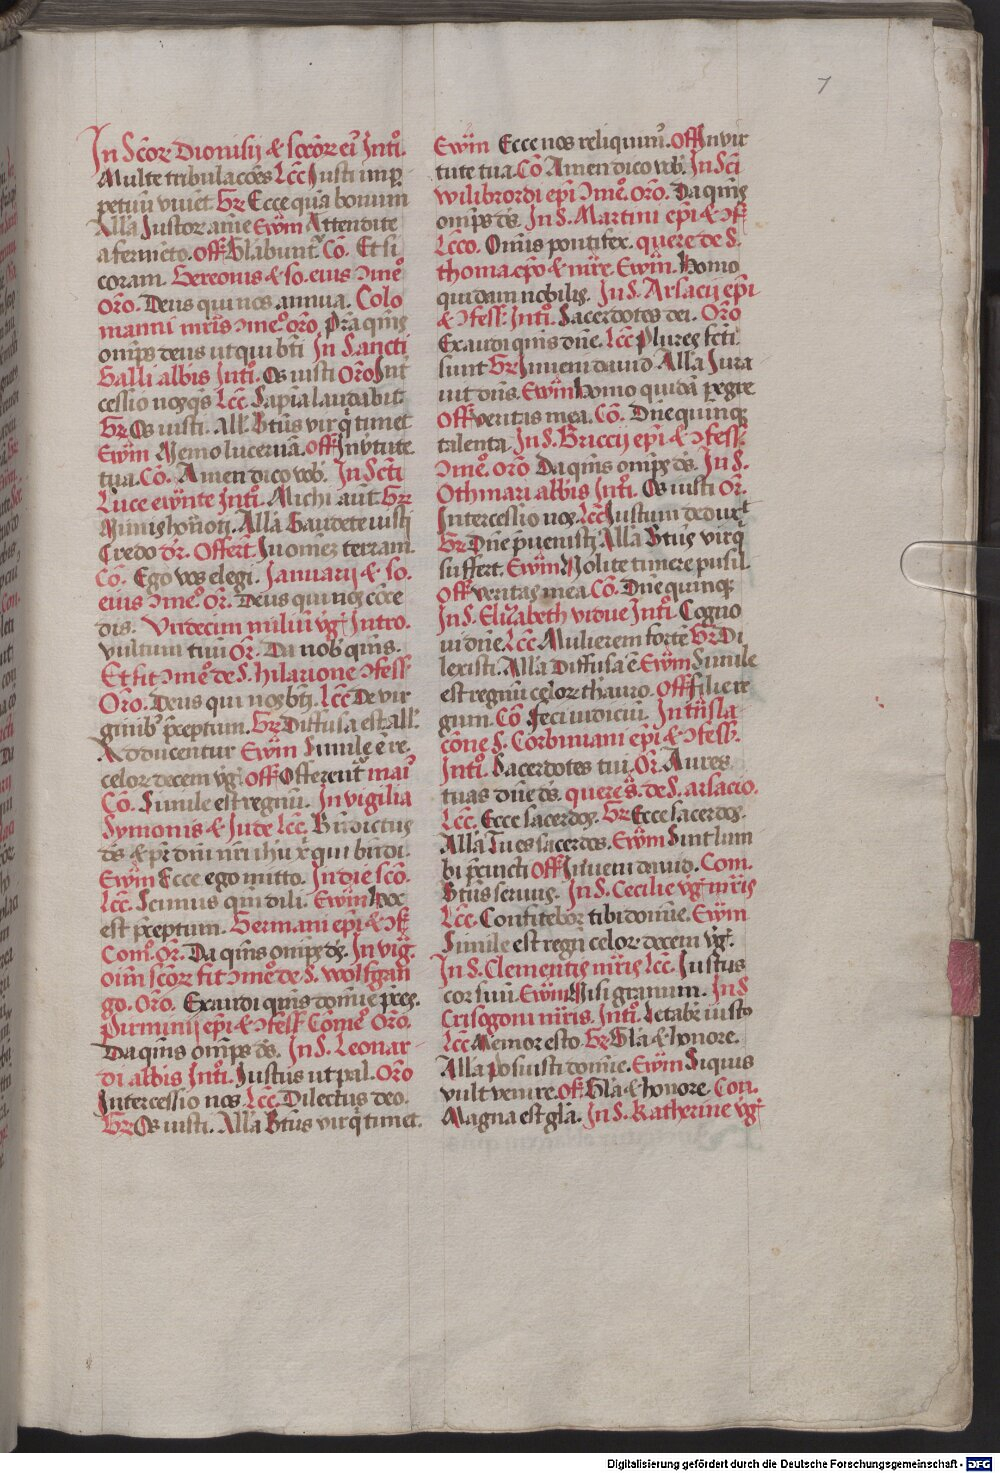 7
In Scōꝝ Dionisij & socioꝝ eiꝰ Intꝰ.
Multe tribulacōes Lcc̄ Justi in ꝑ
petuū viuēt Gꝝ Ecce quā bonum
Allā Justoꝝ anīe Ewm̄ Attendite
a fermēto. Off Glabuntꝰ. Cō. Et si
coram. Gereonis & so. eius ↄmeꝰ
Orō. Deus qui nos annua. Colo
manni mr̄is ↄmeꝰ orō. Pr̄a qm̄s
omp̄s deus ut qui bt̄i In Sancti
Galli abbīs Intꝰ. Os iusti Orō Int̄
cessio nos qs̄ Lcc̄ Sapiā laudabit
Gꝝ Os iusti. All. Bt̄us vir qͥ timet
Ewm̄ Nemo lucernā. Off In v̄tute
tua. Cō. Amen dico vob̄. In Sct̄i
Luce ewn̄te Intꝰ. Michi aut̄ Gꝝ
Nimis honoti. Allā Gaudete iusti
Credo dꝛ. Offert̄. In omēz terram
Cō. Ego vos elegi. Januarij & so.
eius ↄmeꝰ Oꝛ. Deus qui nos cōce
dis. Undecim miliū vgꝰ Intro.
vultum tuū Oꝛ. Da nob̄ qm̄s.
Et fit ↄmeꝰ de S. hilarione ↄfess
Orō. Deus qui nos bt̄i. Lcc̄ De vir
ginibꝰ p̄ceptum. Gꝝ Diffusa est all.
Adducentur Ewm̄ Simile ē re.
celoꝝ decem vgꝰ Off Offerentꝰ maiꝰ
Cō. Simile est regnū. In vigilia
Symonis & Jude Lcc̄. Bn̄dictus
ds̄ & pr̄ dnī nr̄i ihu xp̄i qui bn̄di.
Ewm̄ Ecce ego mitto. In die scō.
Lcc̄. Scimus qm̄ dili. Ewm̄ Hoc
est p̄ceptum. Germani epī & ↄf
Comꝰ. Oꝛ. Da qm̄s omp̄s ds̄. In vigꝰ.
oīm scōꝝ fit ↄmeꝰ de S. wolfgan
go. Orō. Exaudi qm̄s domīe p̄ces.
Pirminij epī & ↄfess Cōmeꝰ Orō.
Da qm̄s omp̄s ds̄. In S. Leonar
di abbīs Intꝰ. Justus ut pal. Orō
Intercessio nos. Lcc̄. Dilectus deo.
Gꝝ Os iusti. Allā Bt̄us vir qͥ timet.
Ewm̄ Ecce nos reliquimꝰ. Off In vir
tute tua. Cō Amen dico vob̄. In Sct̄i
wilibrordi epī ↄmeꝰ. Orō. Da qm̄s
omp̄s ds̄. In S. Martini epī & ↄf
Lcc̄o. Omīs pontifex. quere de S.
thoma epō & mr̄e. Ewm̄. Homo
quidam nobilis. In S. Arsacij epī
& ↄfess. Intꝰ. Sacerdotes dei. Orō
Exaudi qm̄s dn̄e. Lcc̄ Plures fct̄i
sunt Gꝝ Inueni dauid Allā Jura
uit dn̄s. Ewm̄ Homo quidā ꝑegre
Off veritas mea. Cō. Dn̄e quinqꝫ
talenta. In S. Briccij epī & ↄfess
ↄmeꝰ. Orō Da qm̄s omp̄s ds̄. In S.
Othmari abbīs Intꝰ. Os iusti Oꝛ.
Intercessio nos. Lcc̄ Justum deduxͭ
Gꝝ Dn̄e p̄uenisti Allā Bt̄us vir qͥ
suffert. Ewm̄ Nolite timere pusil.
Off veritas mea Cō. Dn̄e quinqꝫ
In S. Elizabeth vidue Intꝰ Cogno
ui dn̄e. Lcc̄ Mulierem fortē Gꝝ Di
lexisti. Allā Diffusa ē. Ewm̄ Simile
est regnū celoꝝ thauro. Off filie re
gum. Cō Feci iudiciū. In tn̄sla
cōne S. Corbiniani epī & ↄfess.
Intꝰ. Sacerdotes tui. Oꝛ. Aures
tuas dn̄e ds̄. quere ꝰ. de S. arsacio.
Lcc̄. Ecce sacerdos. Gꝝ Ecce sacerdos.
Allā Tu es sacerdos. Ewm̄ Sint lum
bi p̄cincti Off Inueni dauid. Com.
Bt̄us seruus. In S. Cecilie vgꝰ mr̄is
Lcc̄. Confitebor tibi domīe. Ewm̄
Simile est regn̄ celoꝝ decem vgꝰ.
In S. Clementis mr̄is Lcc̄. Justus
cor suū. Ewm̄ Nisi granum. In S
Crisogoni mr̄is. Intꝰ. Letabr̄ iustꝰ
Lcc̄ Memor esto. Gꝝ Glā & honore.
Allā posuisti domīe. Ewm̄ Si quis
vult venire. Of. Glā & honore. Con.
Magna est glā. In S. Katherine vgꝰ
Digitalisierung gefördert durch die Deutsche Forschungsgemeinschaft - DFG